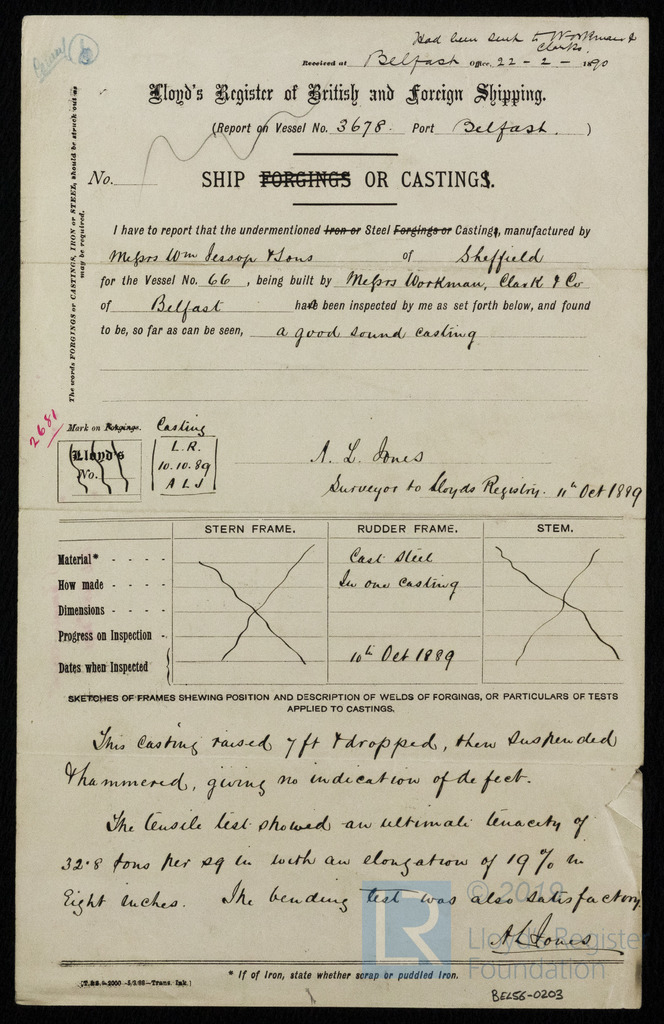 Had been sent to Workman &
Clarks.
Received at Belfast Office, 22 - 2 - 1890
Lloyd's Register of British and Foreign Shipping.
(Report on Vessel No. 3678. Port Belfast. )
No.
SHIP FORGINGS OR CASTINGS.
The words FORGINGS or CASTINGS, IRON or STEEL, should be struck out as
may be required.
I have to report that the undermentioned Iron or Steel Forgings or Casting, manufactured by
Messrs Wm Jessop & Sons of Sheffield
for the Vessel No. 66, being built by Messrs Workman, Clark & Co
of Belfast has been inspected by me as set forth below, and found
to be, so far as can be seen, a good sound casting
2681
Mark on Forgings. Casting
Lloyd's
No.
L.R.
10.10.89
A L J
A. L. Jones
Surveyor to Lloyds Registry. 11th Oct 1889
STERN FRAME. RUDDER FRAME. STEM.
Material* - - - - Cast Steel
How made - - - - In one casting
Dimensions - - - -
Progress on Inspection -
Dates when Inspected 10th Oct 1889
SKETCHES OF FRAMES SHEWING POSITION AND DESCRIPTION OF WELDS OF FORGINGS, OR PARTICULARS OF TESTS
APPLIED TO CASTINGS.
This casting raised 7ft & dropped, then suspended
& hammered, giving no indication of defect.
The tensile test showed an ultimate tenacity of
32.8 tons per sq in with an elongation of 19% in
Eight inches. The bending test was also satisfactory.
A L Jones
* If of Iron, state whether scrap or puddled Iron.
BEL56-0203
LR
© 2019
Lloyd's Register
Foundation